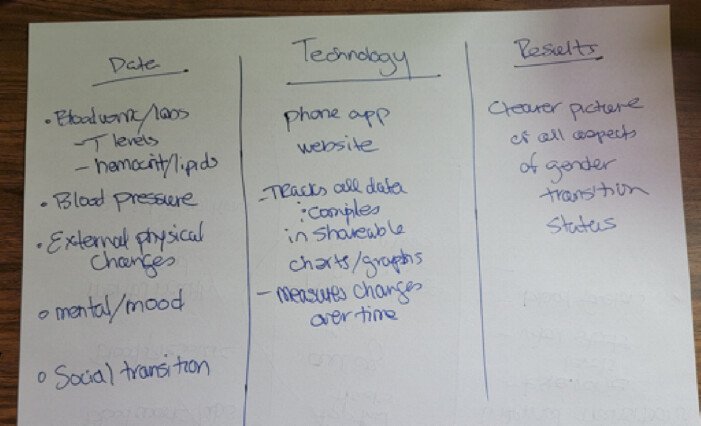 Date
• Bloodwork/labs
- T levels
- hemocrit/lipids
• Blood pressure
• External physical
changes
o mental/mood
o Social transition
Technology
phone app
website
- Tracks all data
: compiles
in shareable
charts/graphs
- measures changes
over time
Results
Clearer picture
of all aspects
of gender
transition
status